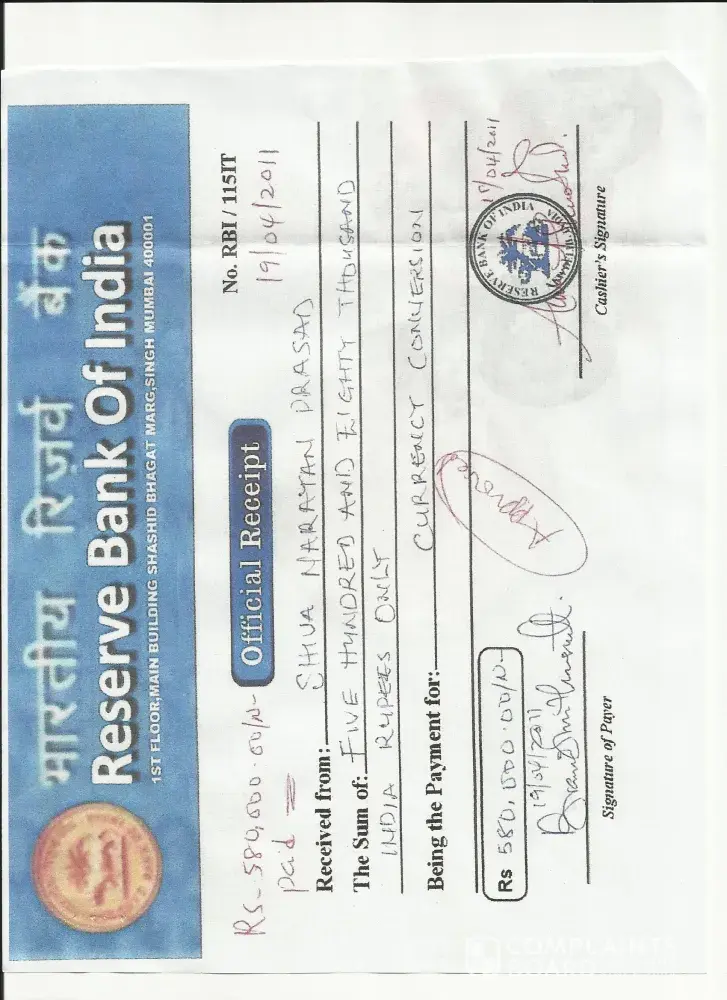 भारतीय रिज़र्व बैंक
Reserve Bank Of India
1ST FLOOR,MAIN BUILDING SHASHID BHAGAT MARG,SINGH MUMBAI 400001
Official Receipt
No. RBI / 115IT
19/04/2011
Rs-580,000.00/N-
paid
Received from: SHIVA NARAYAN PRASAD
The Sum of: FIVE HUNDRED AND EIGHTY THOUSAND
INDIA RUPEES ONLY
Being the Payment for: CURRENCY CONVERSION
Approved
Rs 580,000.00/N-
19/04/2011
Signature of Payer
RESERVE BANK OF INDIA
19/04/2011
Cashier's Signature
COMPLAINTS
BOARD